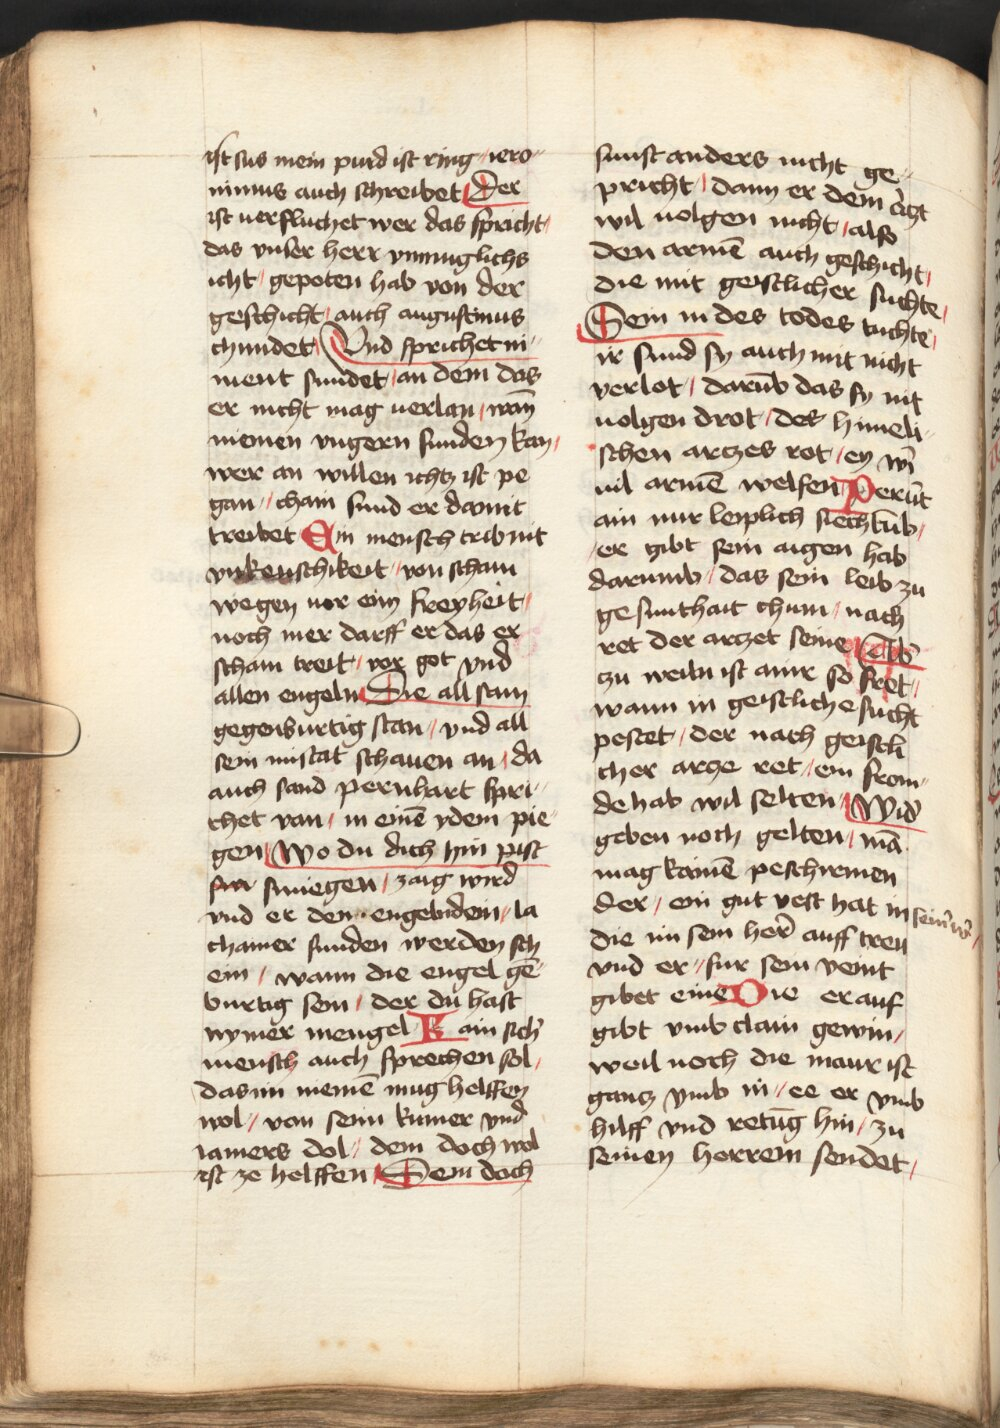 ist sus mein purd ist ring / iero-
nimus auch schreibet Der
ist uerfluchet wer das spricht /
das vnser herr vnmuglichs
icht / gepoten hab von der
geschicht / auch augustinus
chundet / Vnd sprichet ni-
ment sundet / an dem das
er nicht mag uerlan / wañ
niemen vngern sunden kan /
wer an willen ichtz ist pe
gan / chain sund er damit
treibet Ein mensch trib nit
vnkeuschikeit / von scham
wegen vor eim freyheit /
noch mer darff er das er
scham treit / vor got vnd
allen engeln Die all stam
gegenburtig stan / vnd all
sein mistat schauen an / da
auch sand pernhart spri-
chet van / in einē ydem pie-
gen / Wo du dich hin pist
smiegen / zaig wird
vnd er den engeln dein / la
chamer sunden werden sch
ein / wann die engel gē-
burtig sein / der du hast
nymer mengel Kain sich
mensch auch sprechen sol /
das im niemē mug helffen
wol / von seim kumer vnd
iamers dol / dem doch wol
ist ze helffen / Dem doch
sunst anders nicht ge-
pricht / dann er dem artzt
wil uolgen nicht / also
den armē auch geschicht /
die mit geistlicher suchte /
Sein in des todes tuchte /
ir sund sy auch mit nicht
verlot / darūb das sy nit
uolgen drot / des himeli-
schen arczes rot / ey wi
uil armē welfen Perūt
ain nur leiplich siechtūb /
er gibt sein aigen hab
darumb / das sein leib zu
gesunthait chum / nach
ret der arczet seine
zu weiln ist amr so fret /
wann in geistliche sucht
pestet / der nach geistli
cher arcze ret / ein frem-
de hab wil selten / Wid
geben noch gelten / mā
mag kainē peschremen
der / ein gut vest hat in sein
die im sein herr auff treu
vnd er / fur sein veint
gibet eine Die er auf
gibt vmb clain gewin /
weil noch die maur ist
gancz vmb in / ee er vmb
hilff vnd retūg hin / zu
seinen herrem sendet /